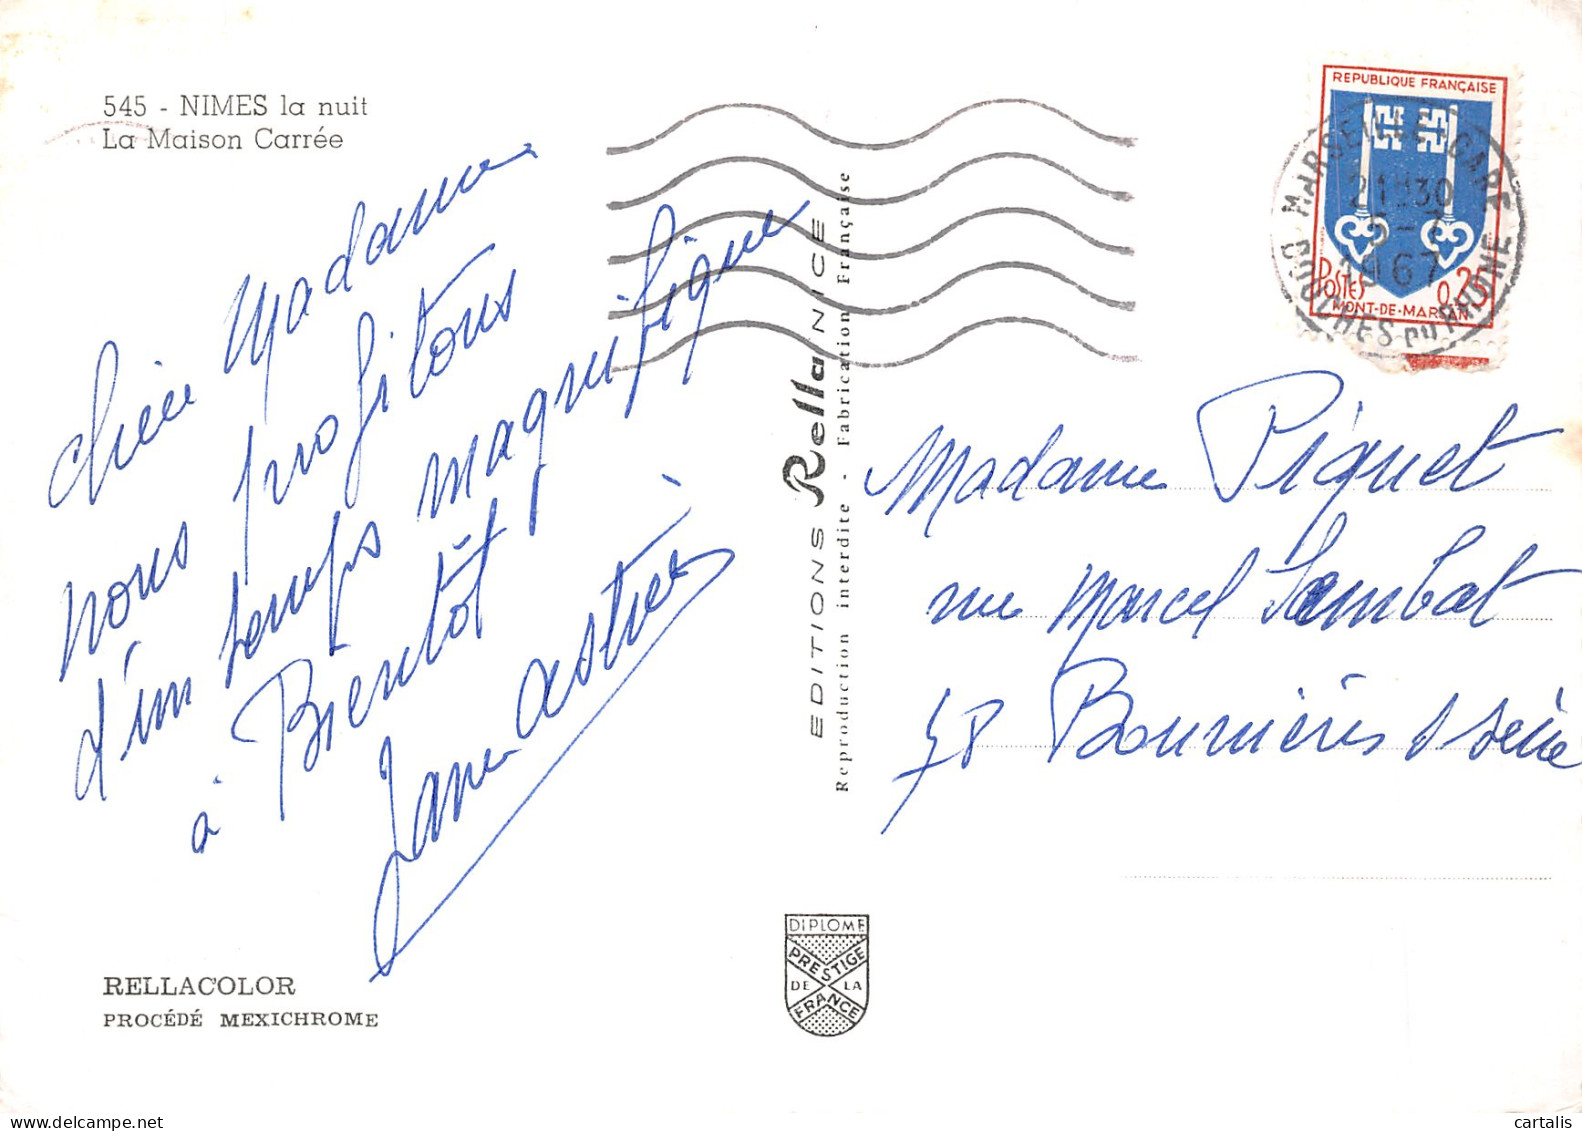 545 - NIMES la nuit
La Maison Carrée
chère Madame
nous profitons
d'un temps magnifique
à Bientôt
EDITIONS Rella NICE
Reproduction interdite - Fabrication Française
REPUBLIQUE FRANÇAISE
POSTES 0,25
MONT-DE-MARSAN
MARSEILLE-GARE
21H30
5-7
1967
BOUCHES DU RHONE
Madame Piquet
rue Marcel Sembat
78 Bonnières s seine
DIPLOME
PRESTIGE
DE LA
FRANCE
RELLACOLOR
PROCÉDÉ MEXICHROME
cartalis